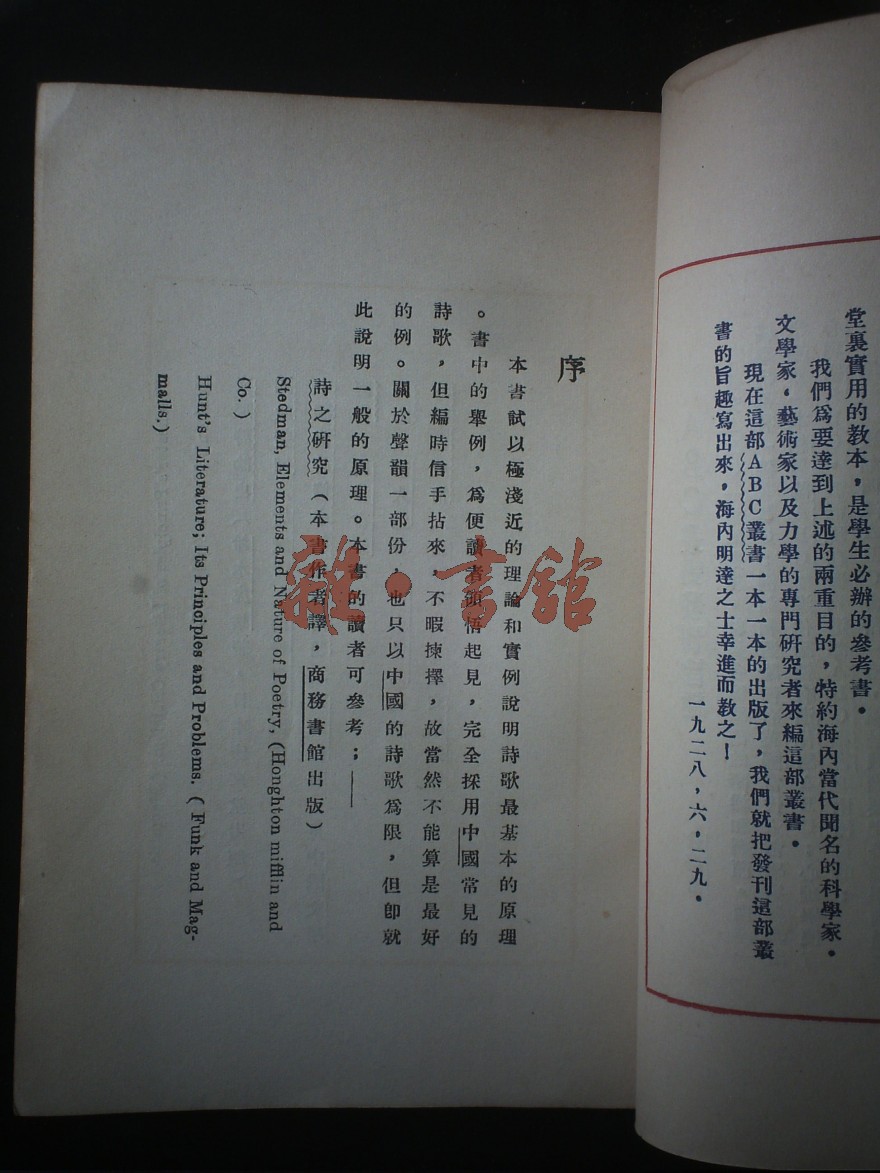 堂裏實用的教本，是學生必辦的參考書。
我們爲要達到上述的兩重目的，特約海內當代聞名的科學家。
文學家，藝術家以及力學的專門研究者來編這部叢書。
現在這部ABC叢書一本一本的出版了，我們就把發刊這部叢
書的旨趣寫出來，海內明達之士幸進而教之！
一九二八，六，二九。
序
本書試以極淺近的理論和實例說明詩歌最基本的原理
。書中的舉例，爲便讀者領悟起見，完全採用中國常見的
詩歌，但編時信手拈來，不暇揀擇，故當然不能算是最好
的例。關於聲韻一部份，也只以中國的詩歌爲限，但即就
此說明一般的原理。本書的讀者可參考；——
詩之研究（本書作者譯，商務書館出版）
Stedman, Elements and Nature of Poetry, (Honghton mifflin and
Co. )
Hunt's Literature; Its Principles and Problems. ( Funk and Mag-
malls.)
雜·書舘